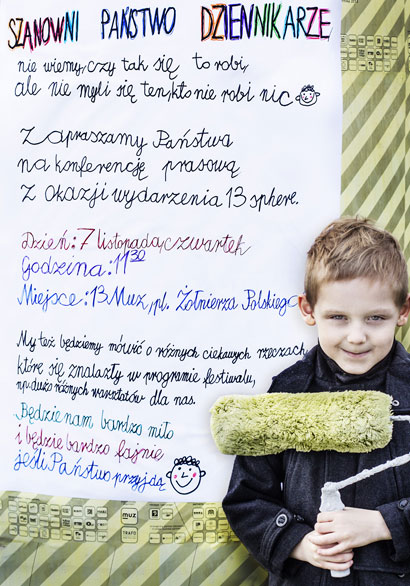 SZANOWNI PAŃSTWO DZIENNIKARZE
nie wiemy, czy tak się to robi,
ale nie myli się ten, kto nie robi nic
Zapraszamy Państwa
na konferencję prasową
z okazji wydarzenia 13 sphere.
Dzień: 7 listopada, czwartek
Godzina: 11³⁰
Miejsce: 13 Muz, pl. Żołnierza Polskiego
My też będziemy mówić o różnych ciekawych rzeczach,
które się znalazły w programie festiwalu,
np. dużo różnych warsztatów dla nas.
Będzie nam bardzo miło
i będzie bardzo fajnie
jeśli Państwo przyjdą
muz
TRAFO